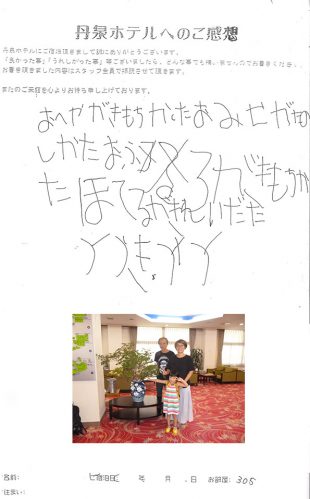 丹泉ホテルへのご感想
丹泉ホテルにご宿泊頂きまして誠にありがとうございます。
「良かった事」「うれしかった事」等ございましたら、どんな事でも構いませんのでお書きください。
お書き頂きました内容はスタッフ全員で拝読させて頂きます。
またのご来館を心よりお待ち申し上げております。
おへやがきもちかたおみせがたの
しかたおふ
ろがきもちか
たほてるがきれいだた
名前: ご宿泊日: 年 月 日 お部屋: 305
住まい: